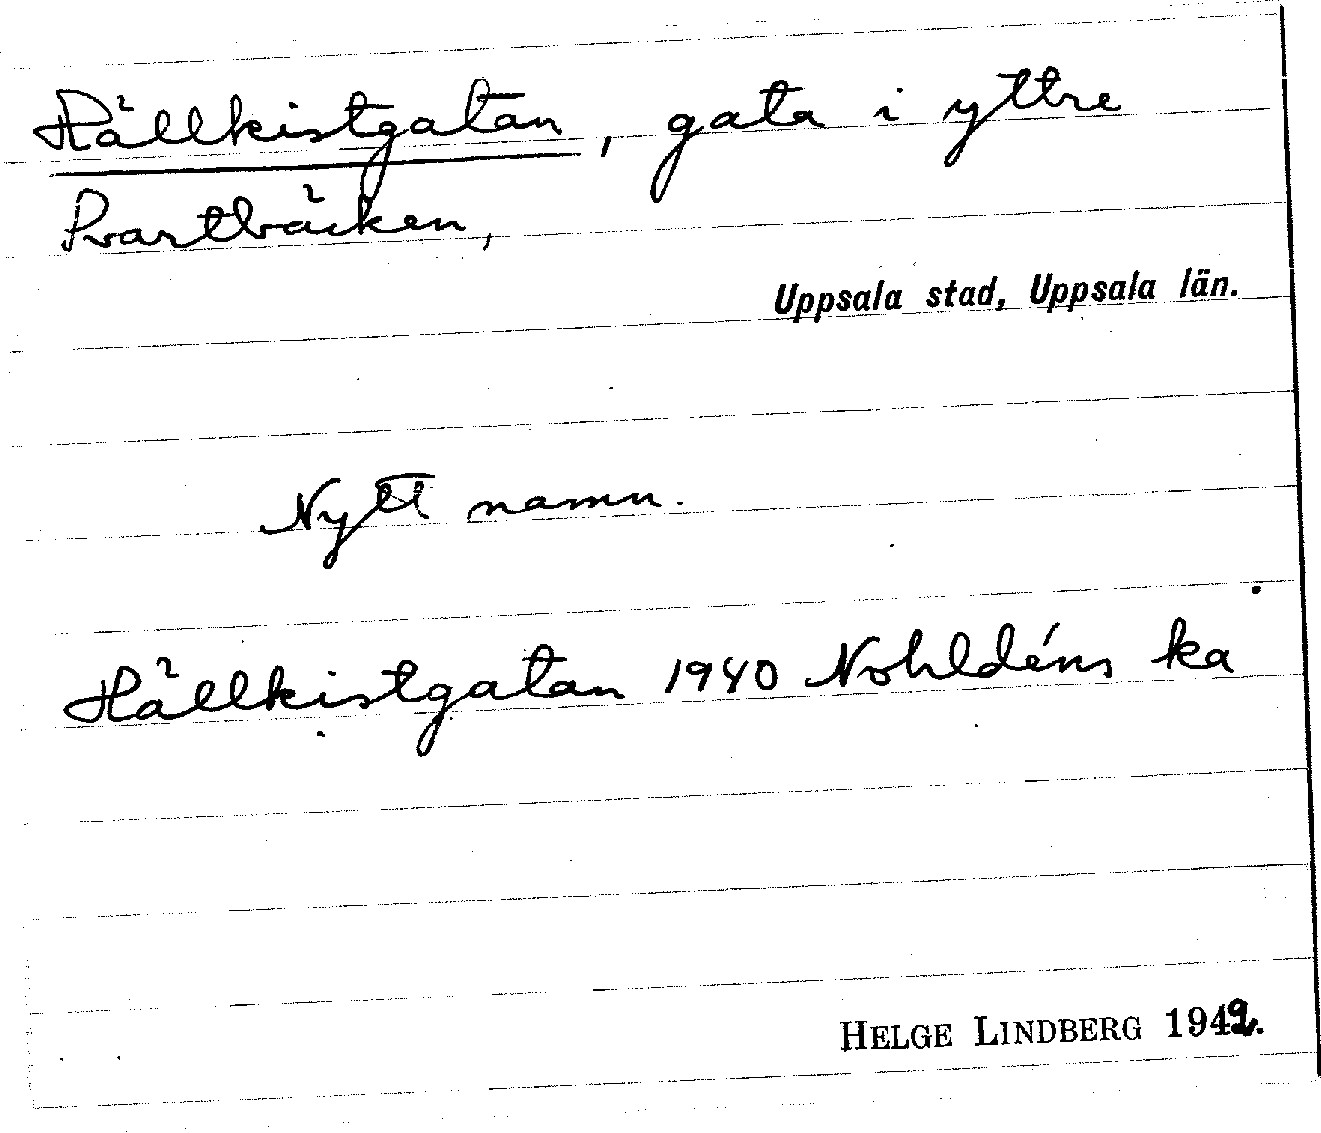 Hällkistgatan, gata i yttre
Svartbäcken,
Uppsala stad, Uppsala län.
Nytt namn.
Hällkistgatan 1940 Nohldéns ka
HELGE LINDBERG